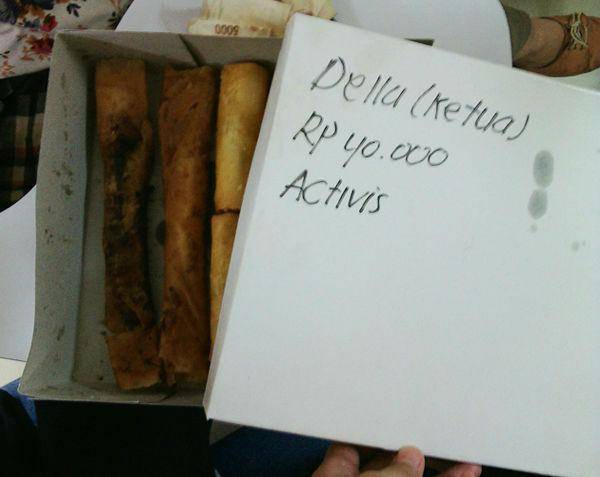 5000
Della (Ketua)
RP 40.000
Activis